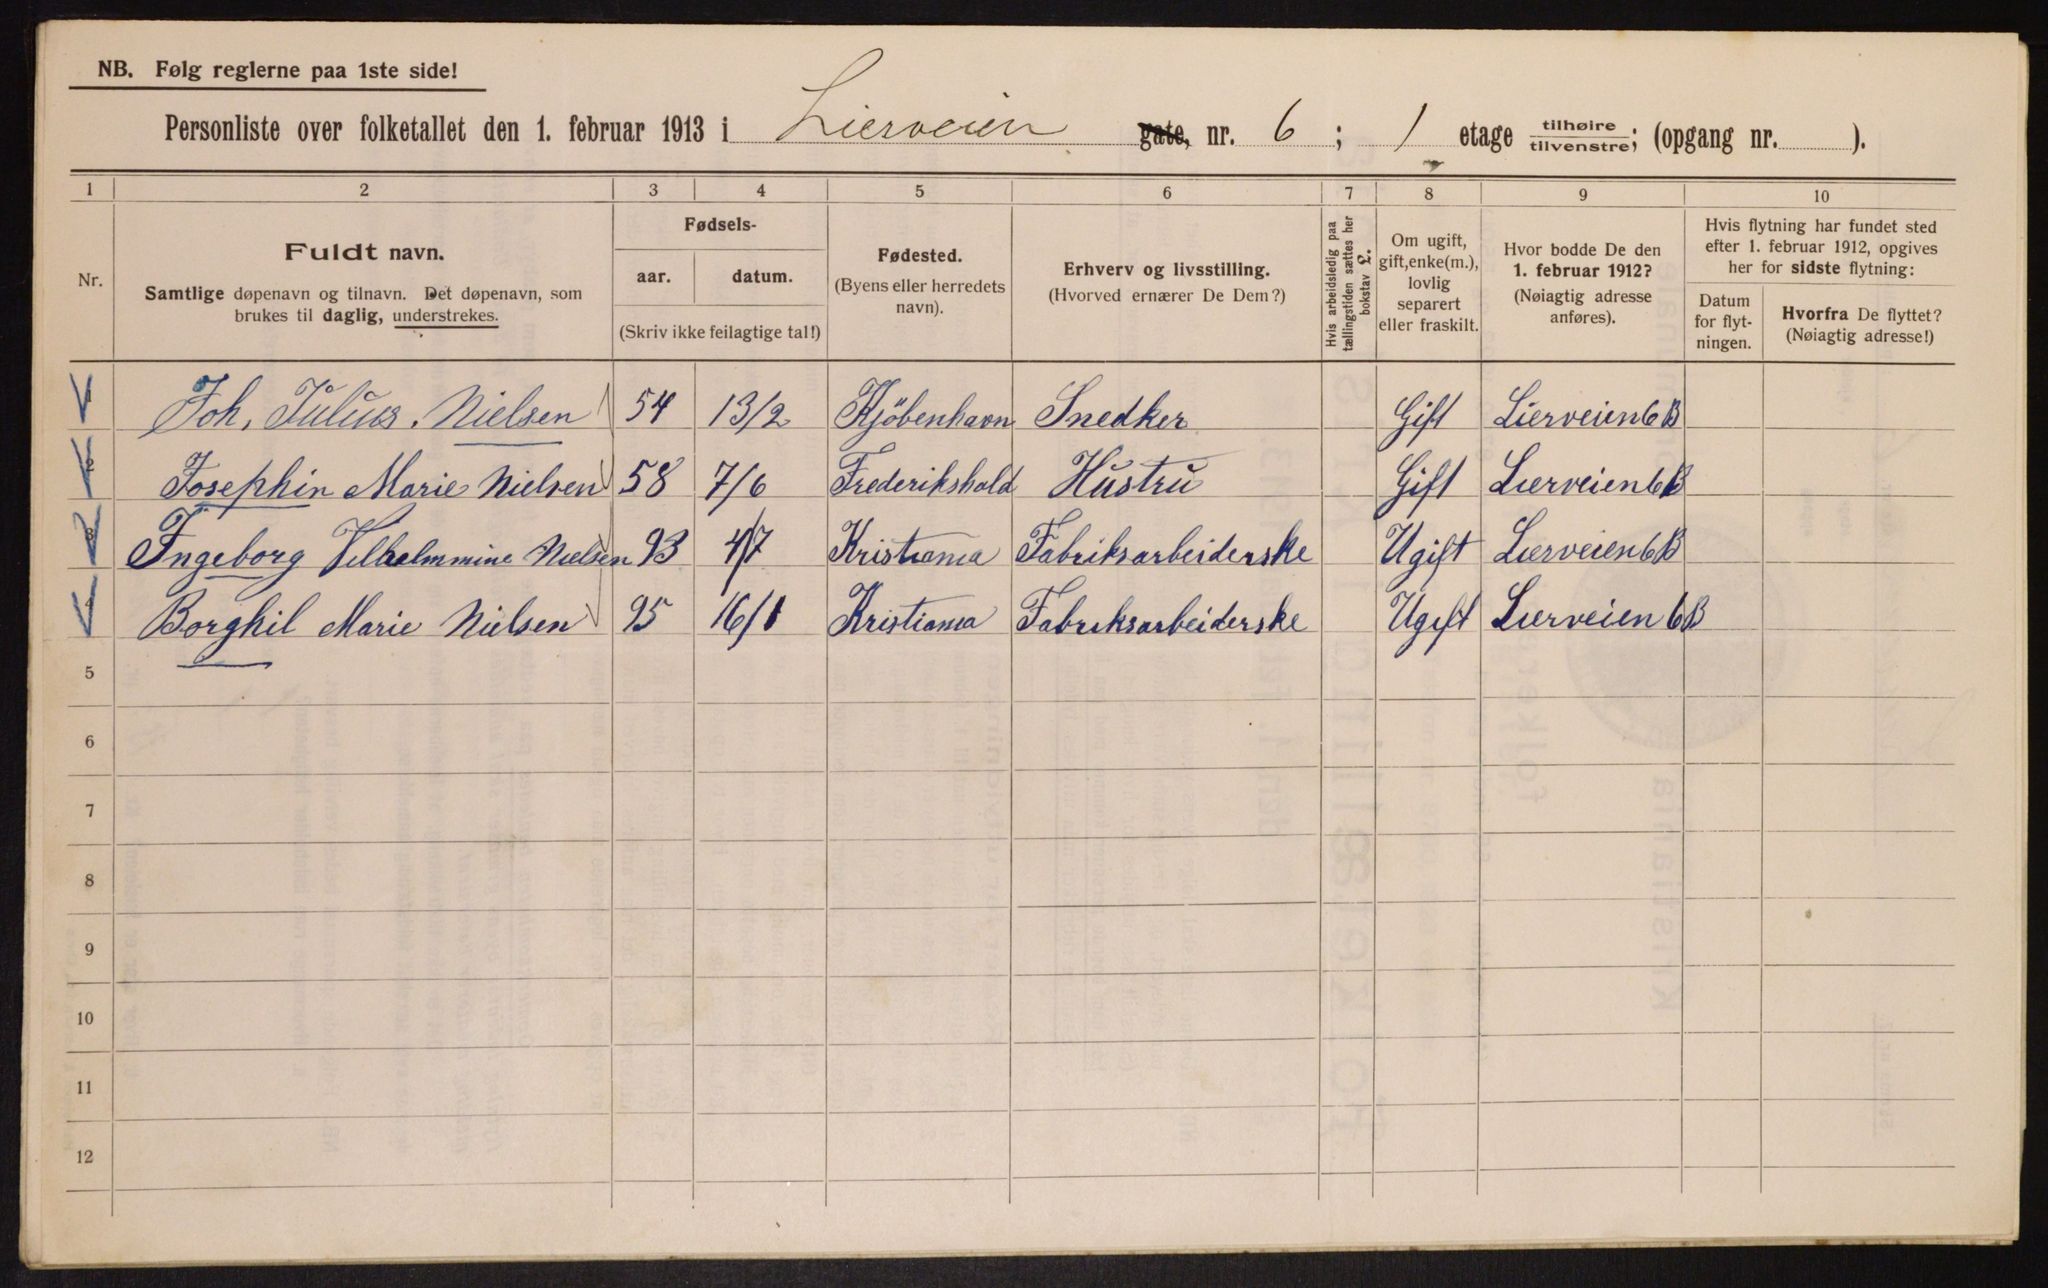 NB. Følg reglerne paa 1ste side!
Personliste over folketallet den 1. februar 1913 i Lierveien gate, nr. 6 ; 1 etage tilhøire tilvenstre; (opgang nr. ).
1 2 3 4 5 6 7 8 9 10
Nr.
Fuldt navn.
Samtlige døpenavn og tilnavn. Det døpenavn, som
brukes til daglig, understrekes.
Fødsels-
aar. datum.
(Skriv ikke feilagtige tal!)
Fødested.
(Byens eller herredets
navn).
Erhverv og livsstilling.
(Hvorved ernærer De Dem?)
Hvis arbeidsledig paa
tællingstiden sættes her
bokstav L.
Om ugift,
gift, enke(m.),
lovlig
separert
eller fraskilt.
Hvor bodde De den
1. februar 1912?
(Nøiagtig adresse
anføres).
Hvis flytning har fundet sted
efter 1. februar 1912, opgives
her for sidste flytning:
Datum
for flyt-
ningen.
Hvorfra De flyttet?
(Nøiagtig adresse!)
1 Joh, Julius. Nielsen 54 13/2 Kjöbenhavn Snedker Gift Lierveien 6 B
2 Josephin Marie Nielsen 58 7/6 Frederikshald Hustru Gift Lierveien 6 B
3 Ingeborg Vilhelmmine Nielsen 93 4/7 Kristiania Fabriksarbeiderske Ugift Lierveien 6 B
4 Borghil Marie Nielsen 95 16/1 Kristiania Fabriksarbeiderske Ugift Lierveien 6 B
5
6
7
8
9
10
11
12